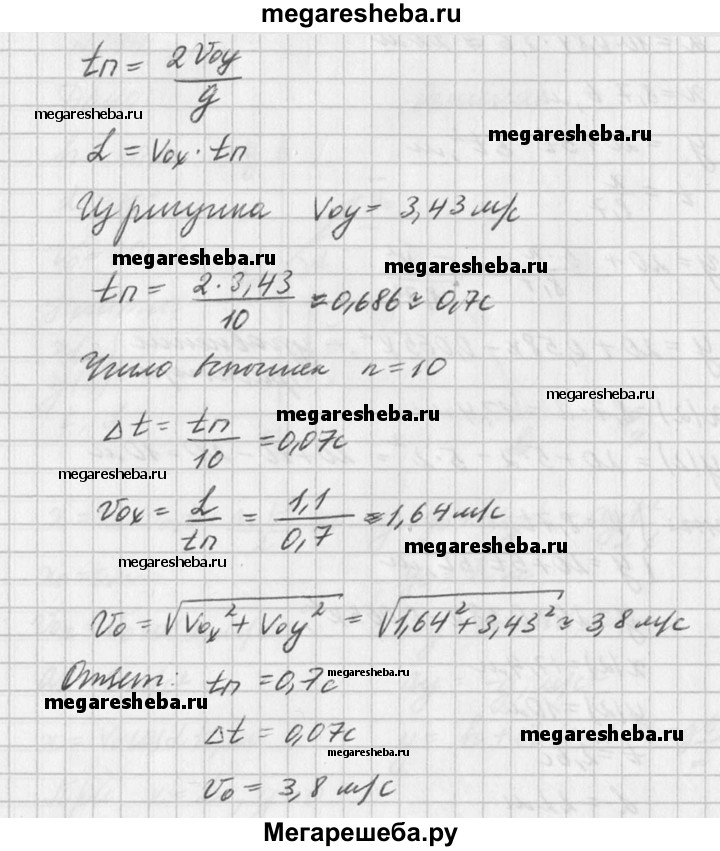 megaresheba.ru
tп = 2Voy / g
megaresheba.ru
megaresheba.ru
L = Vox · tп
Из рисунка Voy = 3,43 м/с
megaresheba.ru
megaresheba.ru
tп = 2·3,43 / 10 ≈ 0,686 ≈ 0,7с
Число вспышек n = 10
megaresheba.ru
megaresheba.ru
Δt = tп / 10 = 0,07с
megaresheba.ru
Vox = L / tп = 1,1 / 0,7 ≈ 1,64 м/с
megaresheba.ru
megaresheba.ru
V₀ = √(Vox² + Voy²) = √(1,64² + 3,43²) ≈ 3,8 м/с
Ответ: tп = 0,7с
megaresheba.ru
megaresheba.ru
Δt = 0,07с
megaresheba.ru
megaresheba.ru
V₀ = 3,8 м/с
Мегарешеба.ру